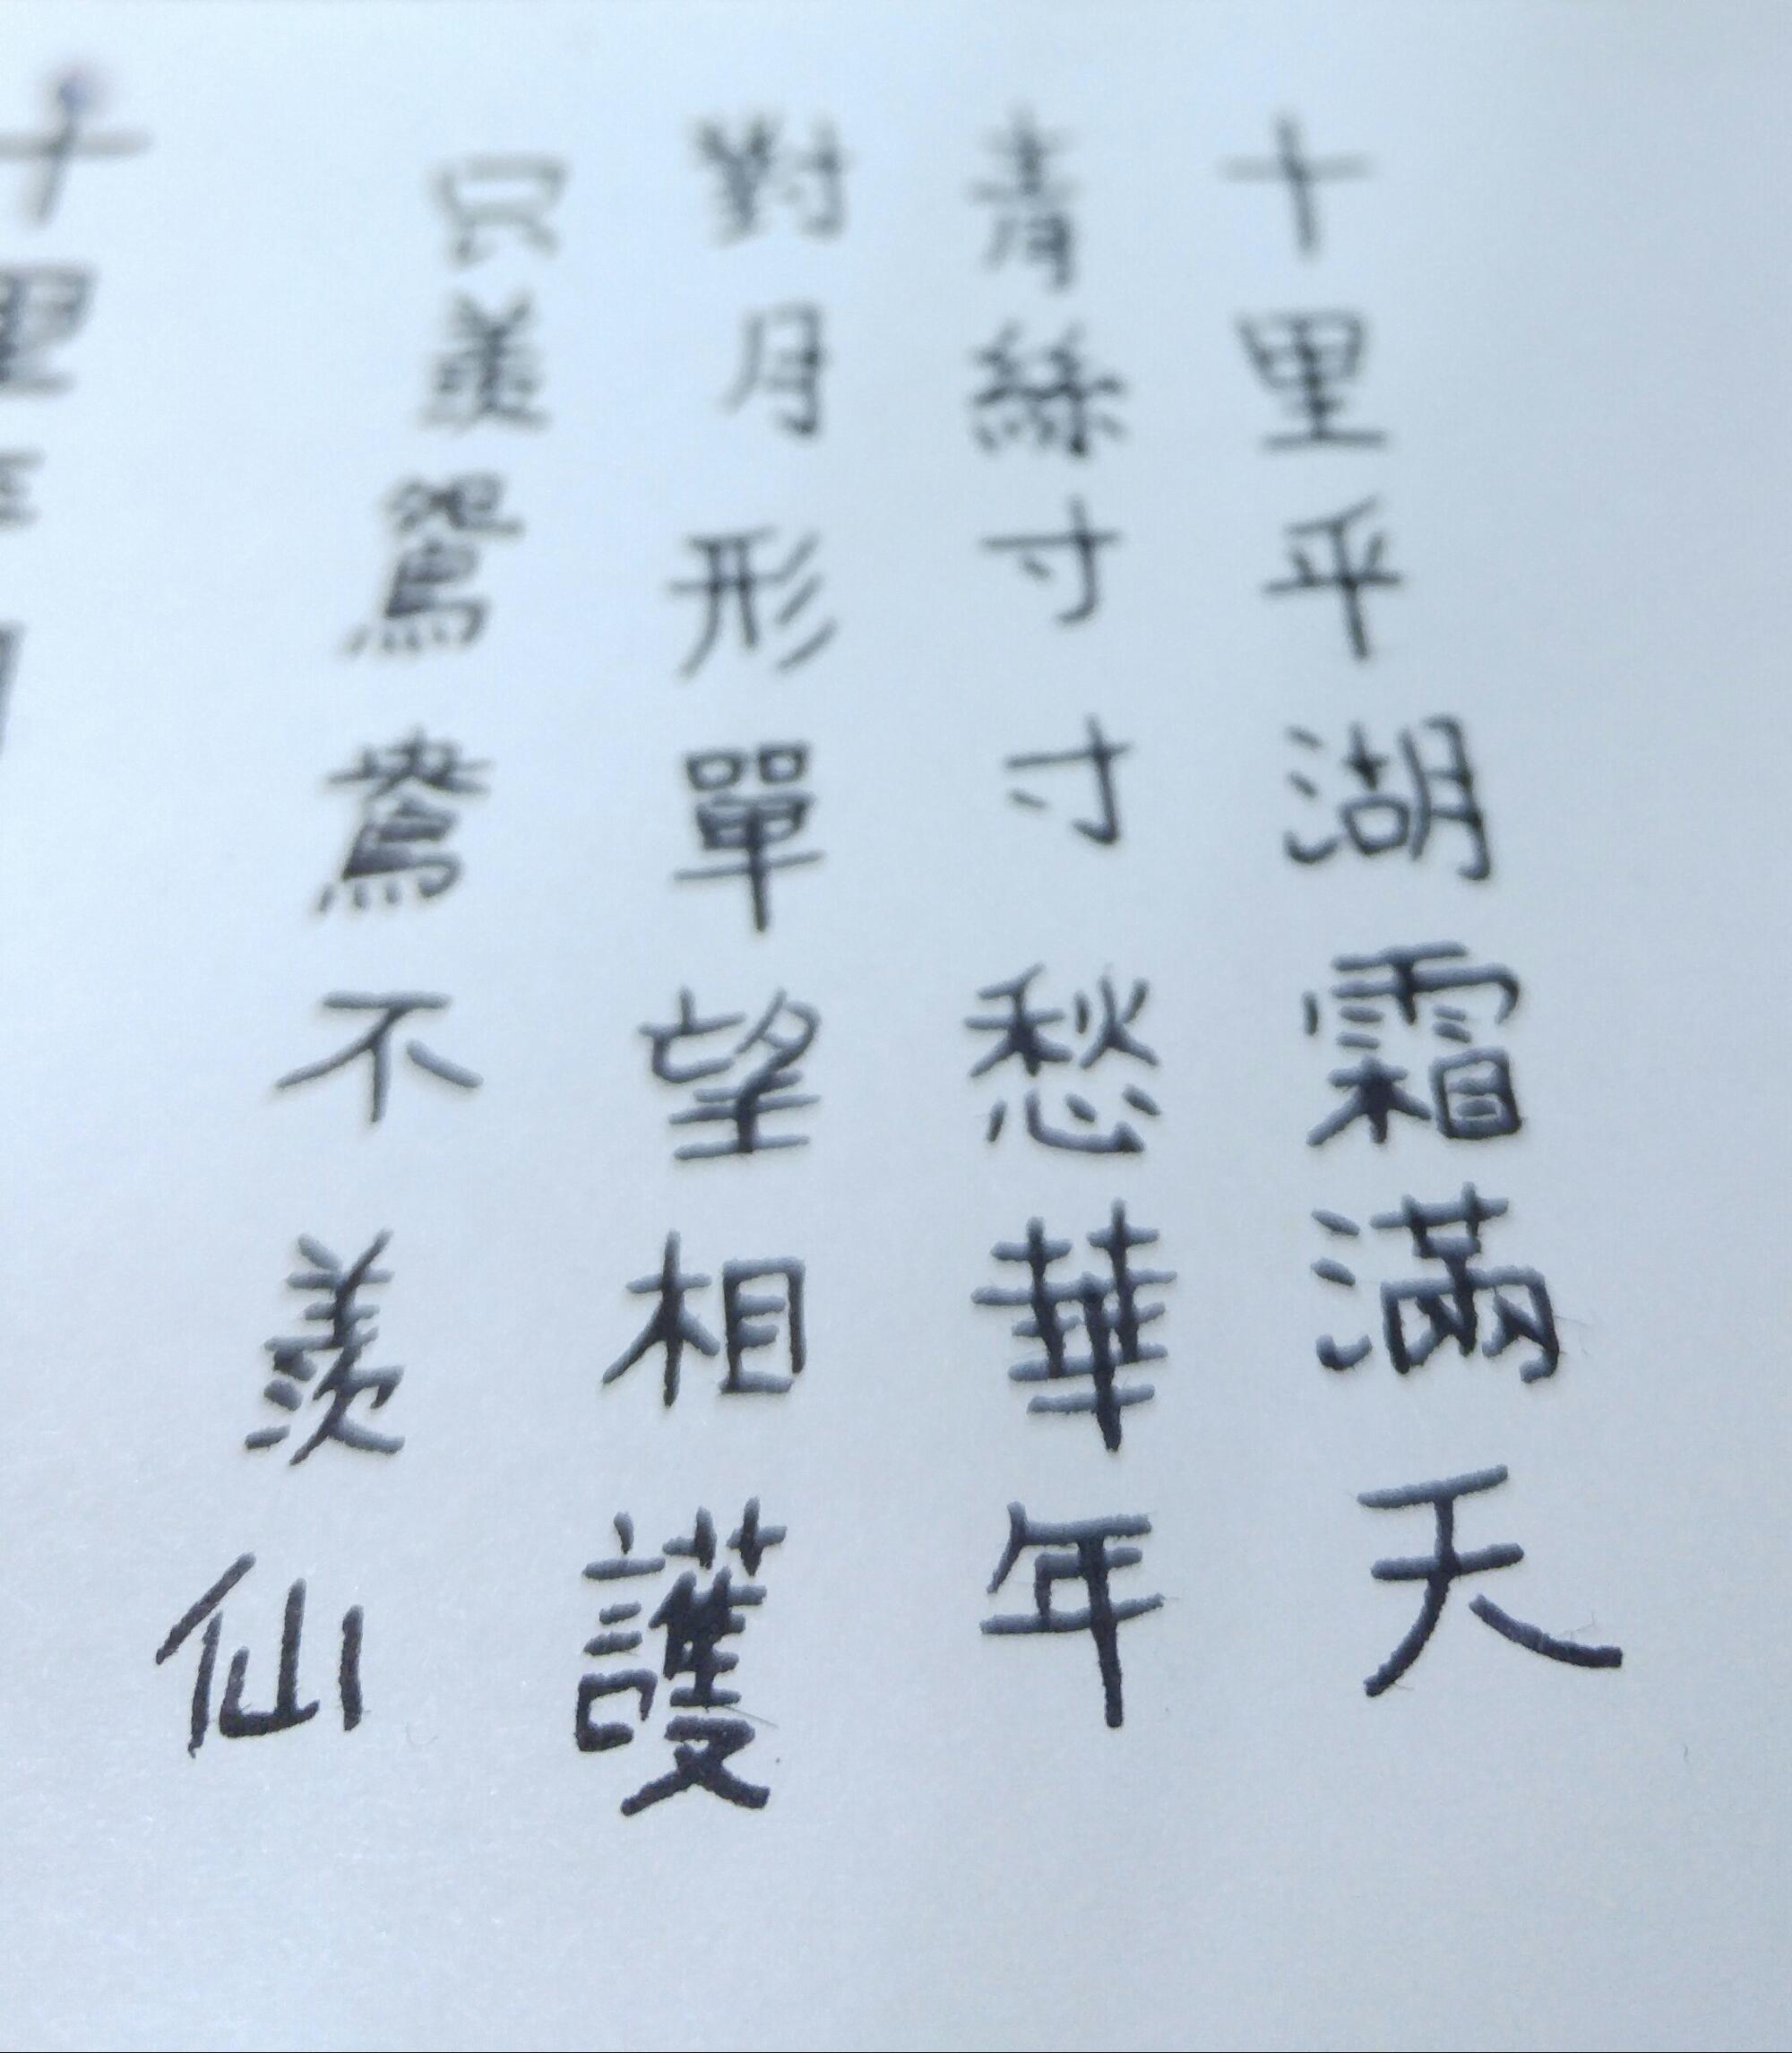 十里平湖霜滿天
青絲寸寸愁華年
對月形單望相護
只羨鴛鴦不羨仙
十里